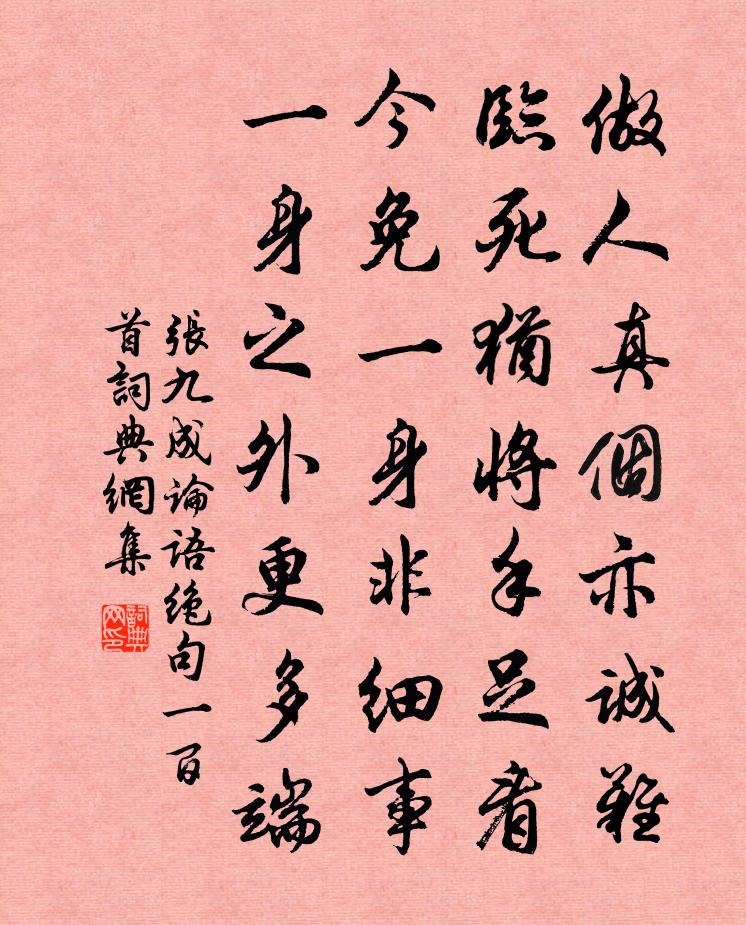 做人真個亦誠難
臨死猶將手足看
今免一身非細事
一身之外更多端
張九成論語絶句一百
首詞典網集
詞典网印